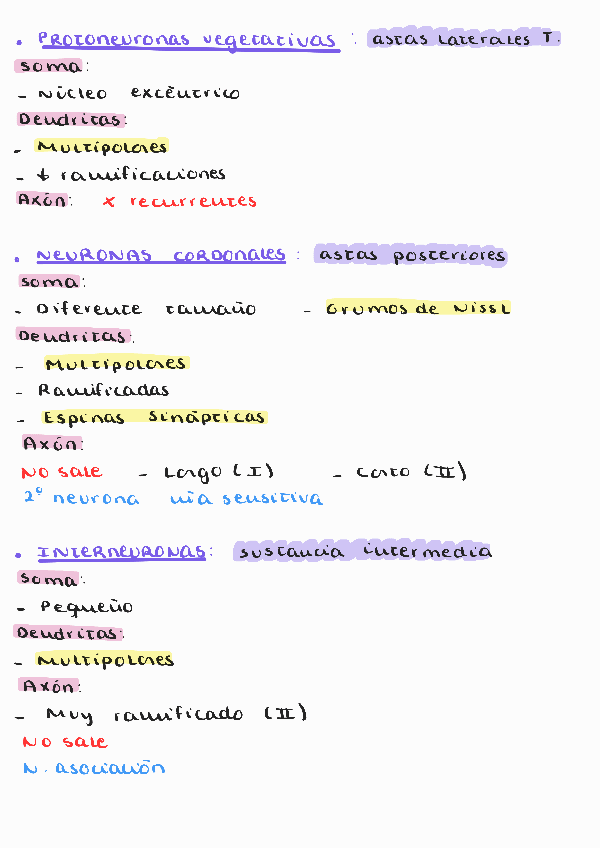 • Protoneuronas vegetativas : astas laterales T.
Soma:
- Núcleo excéntrico
Dendritas:
- Multipolares
- ↓ ramificaciones
Axón: x recurrentes
• NEURONAS CORDONALES : astas posteriores
Soma:
- Diferente tamaño - Grumos de Nissl
Dendritas:
- Multipolares
- Ramificadas
- Espinas Sinápticas
Axón:
No sale - Largo (I) - Corto (II)
2º neurona vía sensitiva
• INTERNEURONAS: sustancia intermedia
Soma:
- Pequeño
Dendritas:
- Multipolares
Axón:
- Muy ramificado (II)
No sale
N. asociación